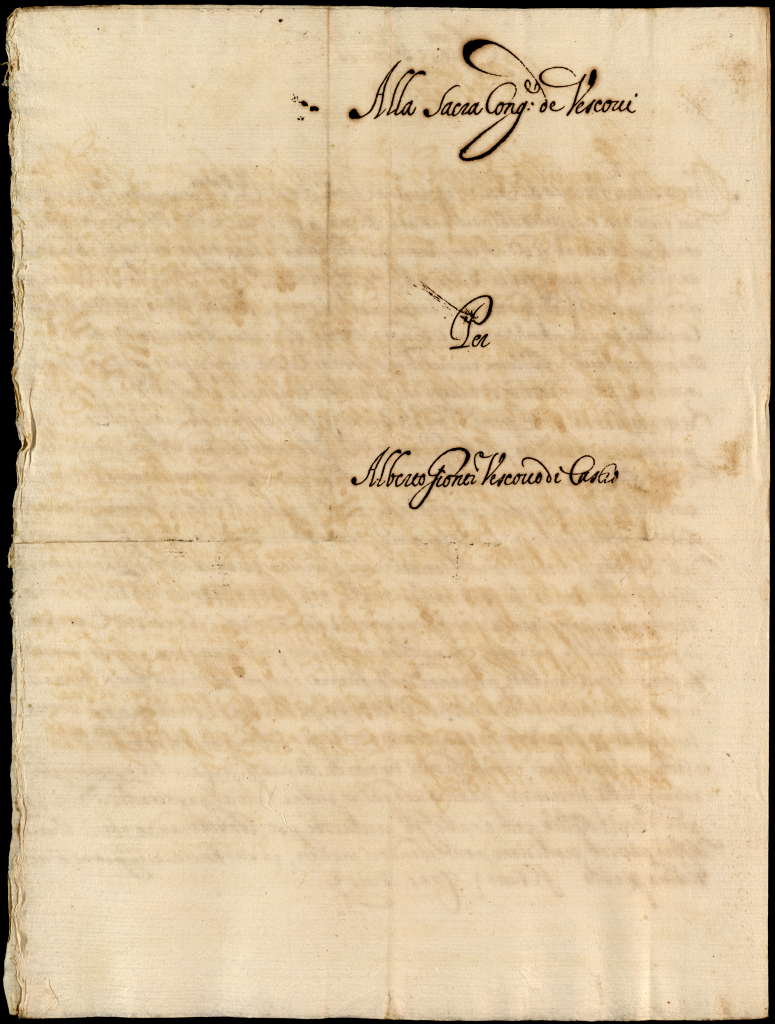 Alla Sacra Cong.e de Vescoui
Per
Alberto Gionti Vescouo di Castro